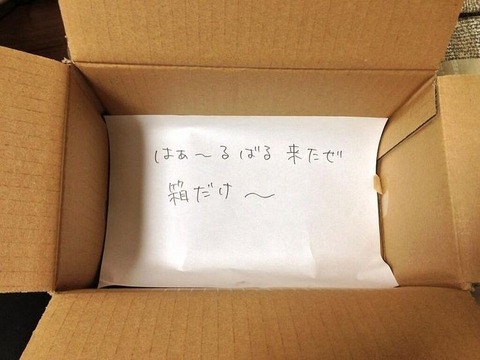 はぁ〜るばる来たぜ
箱だけ〜